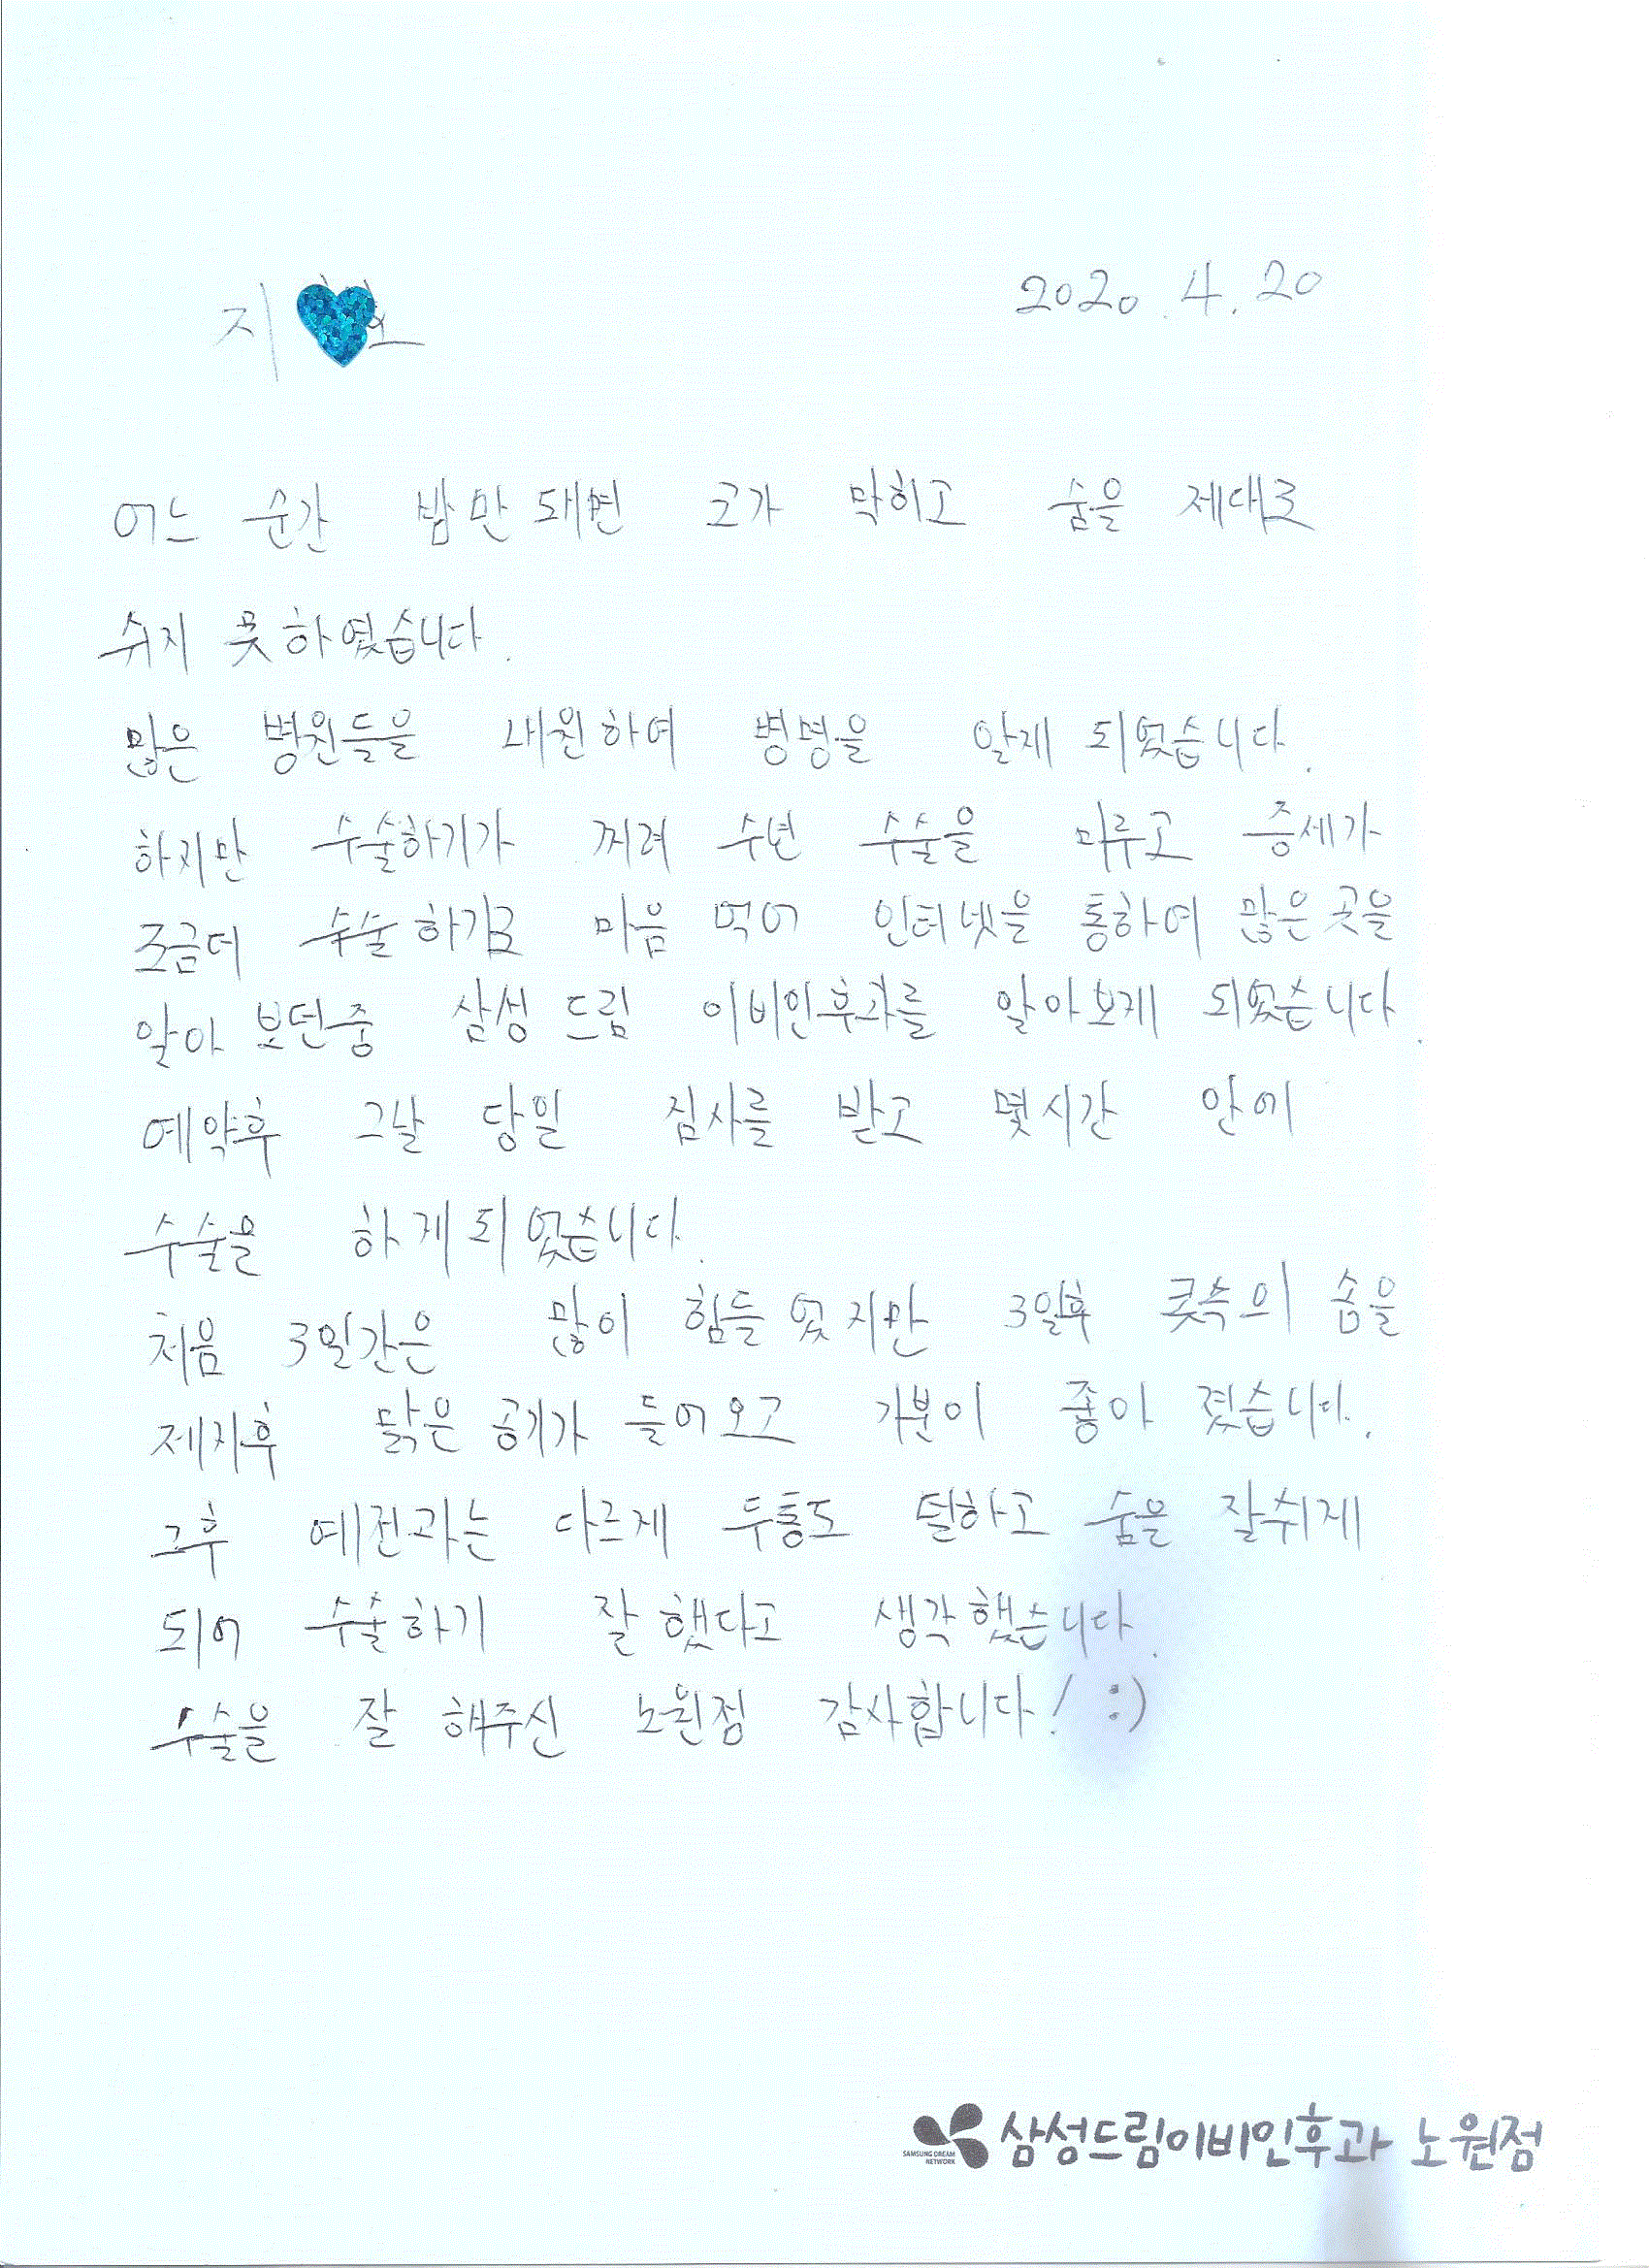 지
2020.4.20
어느 순간 밤만 돼면 코가 막히고 숨을 제대로
쉬지 못하였습니다.
많은 병원들을 내원하여 병명을 알게 되었습니다.
하지만 수술하기가 꺼려 수년 수술을 미루고 증세가
조금더 수술하기로 마음 먹어 인터넷을 통하여 많은 곳을
알아 보던중 삼성드림 이비인후과를 알아보게 되었습니다.
예약후 그날 당일 검사를 받고 몇시간 안에
수술을 하게되었습니다.
처음 3일간은 많이 힘들었지만 3일후 콧속의 솜을
제거후 맑은 공기가 들어오고 기분이 좋아 졌습니다.
그후 예전과는 다르게 두통도 덜하고 숨을 잘쉬게
되어 수술하기 잘했다고 생각했습니다.
수술을 잘 해주신 노원점 감사합니다! :)
SAMSUNG DREAM NETWORK 삼성드림이비인후과 노원점